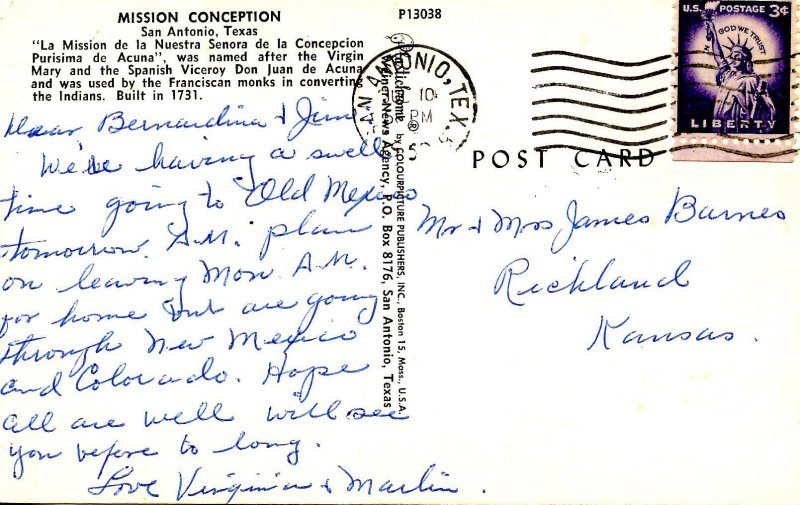 MISSION CONCEPTION
San Antonio, Texas
"La Mission de la Nuestra Senora de la Concepcion
Purisima de Acuna", was named after the Virgin
Mary and the Spanish Viceroy Don Juan de Acuna
and was used by the Franciscan monks in converting
the Indians. Built in 1731.
Dear Bernardina & Jim
We're having a swell
time going to Old Mexico
tomorrow A.M. plan
on leaving Mon A.M.
for home but are going
through New Mexico
and Colorado. Hope
all are well will see
you before to long.
Love Virginia & Marlin.
P13038
by COLOURPICTURE PUBLISHERS, INC., Boston 15, Mass., U.S.A.
News Agency, P.O. Box 8176, San Antonio, Texas
SAN ANTONIO, TEX.
10
PM
U.S. POSTAGE 3¢
IN GOD WE TRUST
LIBERTY
POST CARD
Mr & Mrs James Barnes
Richland
Kansas.